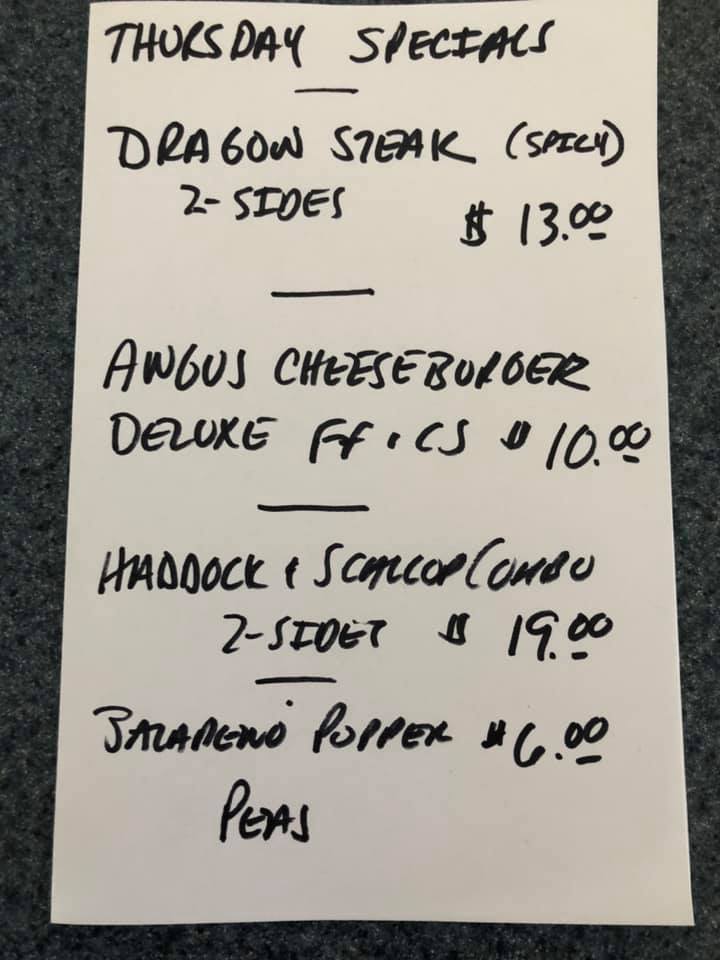 THURSDAY SPECIALS
DRAGON STEAK (SPICY)
2-SIDES $13.00
ANGUS CHEESEBURGER
DELUXE FF & CS $10.00
HADDOCK & SCALLOP COMBO
2-SIDES $19.00
JALAPENO POPPER $6.00
PEAS